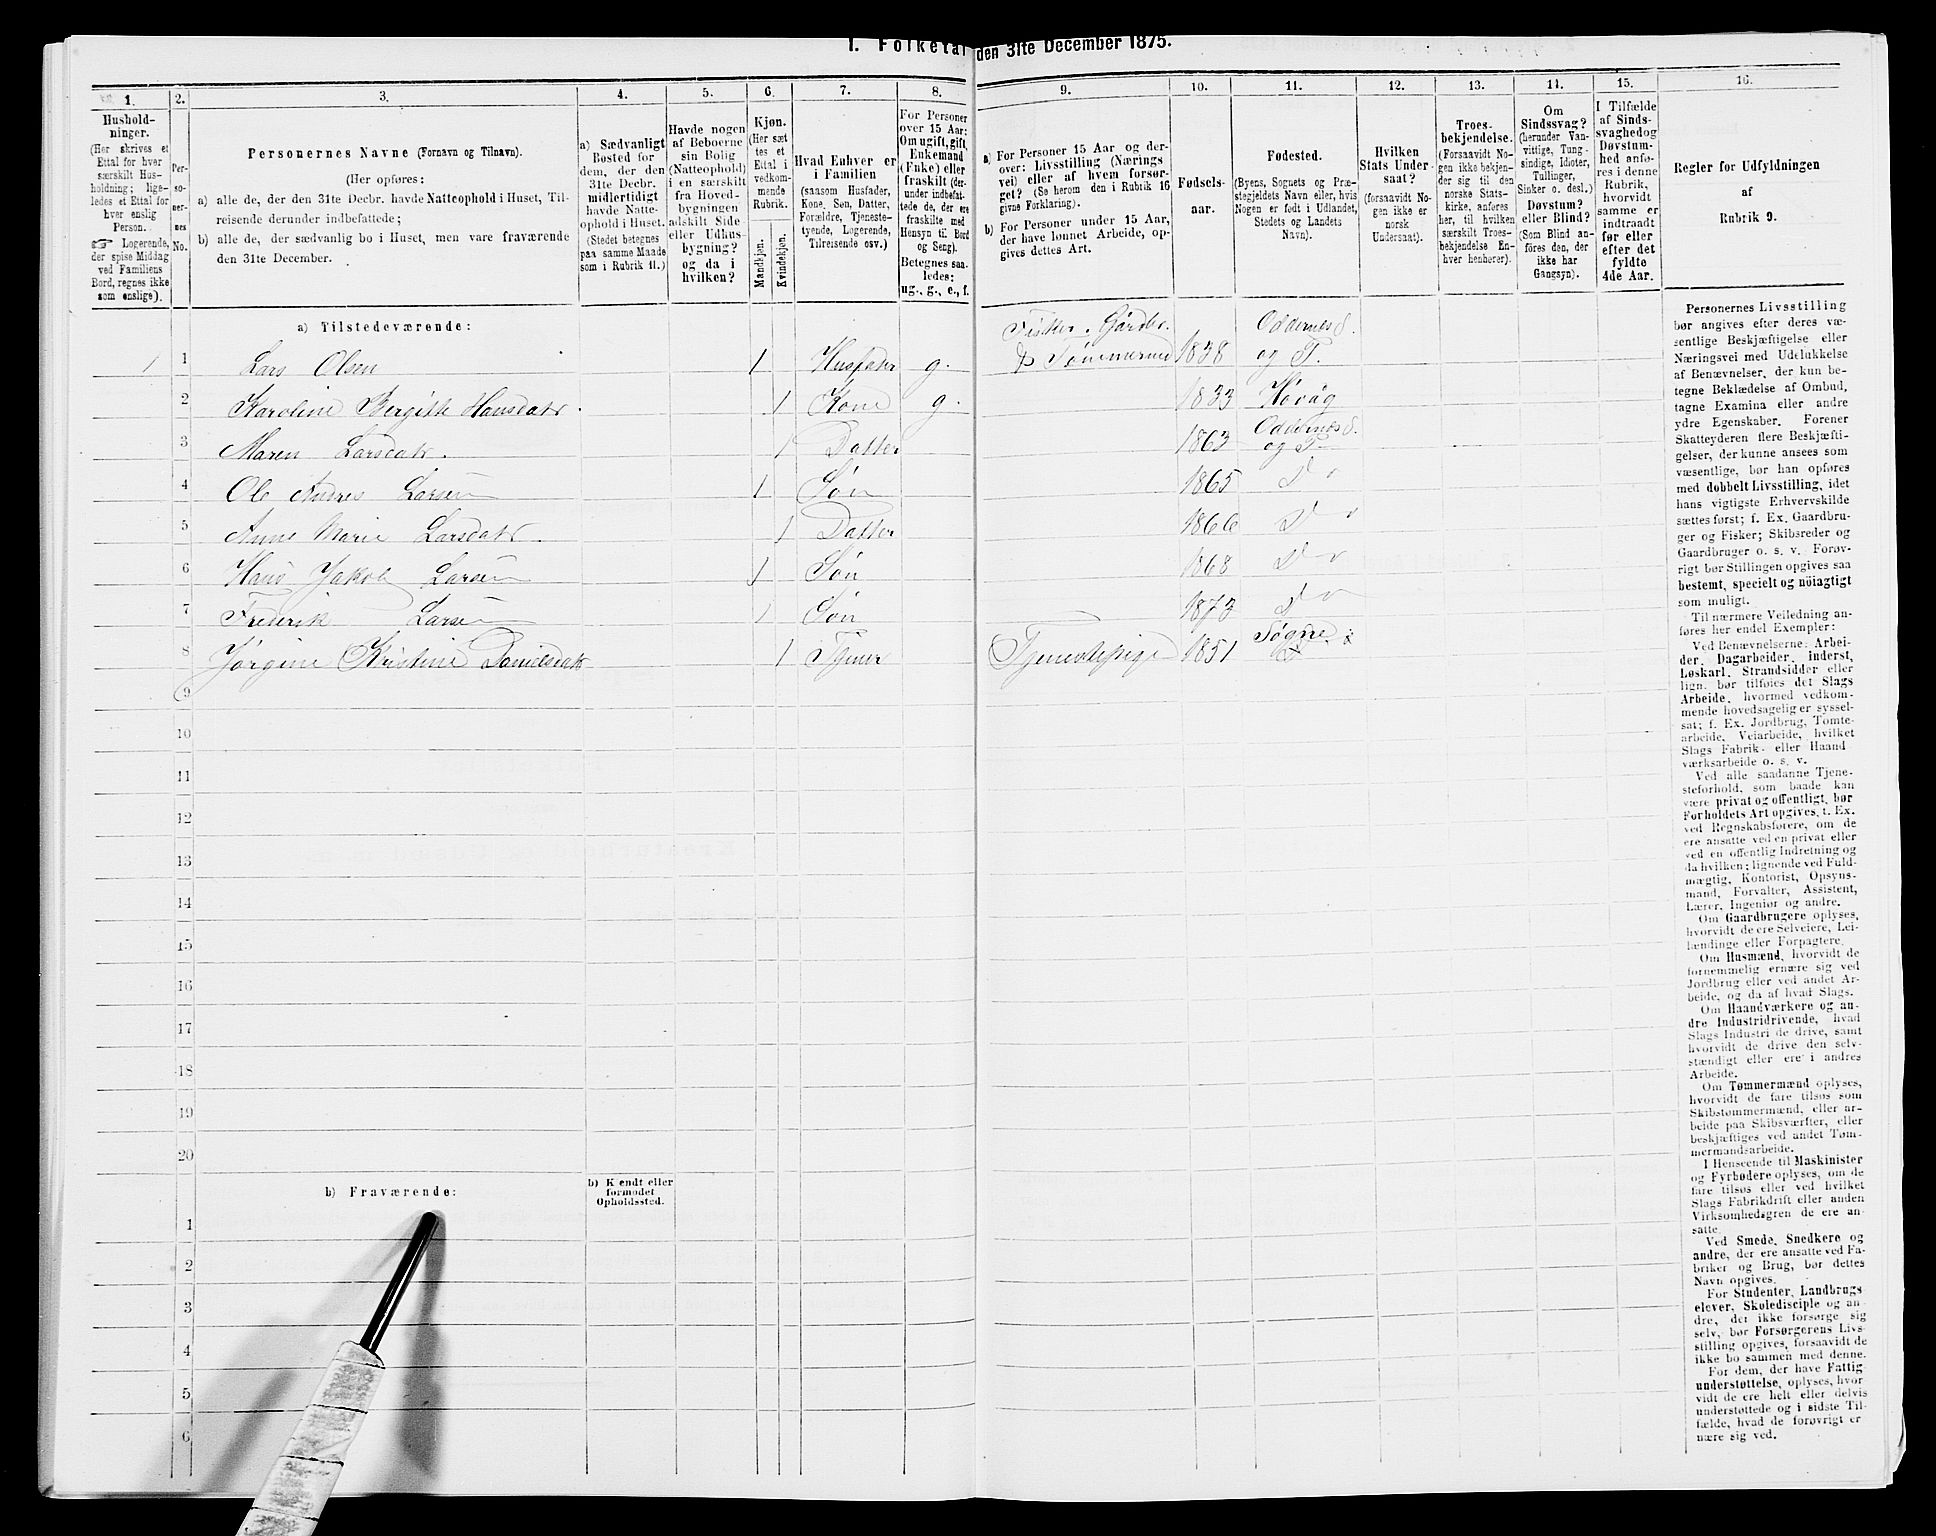 I. Folketal den 31te December 1875.
1. 2. 3. 4. 5. 6. 7. 8. 9. 10. 11. 12. 13. 14. 15. 16.
Hushold-
ninger.
(Her skrives et
Ettal for hver
særskilt Hus-
holdning; lige-
ledes et Ettal for
hver enslig
Person.
☞ Logerende,
der spise Middag
ved Familiens
Bord, regnes ikke
som enslige).
Per-
so-
ner-
nes
No.
Personernes Navne (Fornavn og Tilnavn).
(Her opføres:
a) alle de, der den 31te Decbr. havde Natteophold i Huset, Til-
reisende derunder indbefattede;
b) alle de, der sædvanlig bo i Huset, men vare fraværende
den 31te December.
a) Sædvanligt
Bosted for
dem, der den
31te Decbr.
midlertidigt
havde Natte-
ophold i Huset.
(Stedet betegnes
paa samme Maade
som i Rubrik 11.)
Havde nogen
af Beboerne
sin Bolig
(Natteophold)
i en særskilt
fra Hoved-
bygningen
adskilt Side
eller Udhus-
bygning?
og da i
hvilken?
Kjøn.
(Her sæt
tes et
Ettal i
vedkom-
mende
Rubrik.
Mandkjøn.
Kvindekjøn.
Hvad Enhver er
i Familien
(saasom Husfader,
Kone, Søn, Datter,
Forældre, Tjeneste-
tyende, Logerende,
Tilreisende osv.)
For Personer
over 15 Aar:
Om ugift, gift,
Enkemand
(Enke) eller
fraskilt (der-
under indbefat-
tede de, der ere
fraskilte med
Hensyn til Bord
og Seng).
Betegnes saa-
ledes:
ug., g., e., f.
a) For Personer 15 Aar og der-
over: Livsstilling (Nærings
vei) eller af hvem forsør-
get? (Se herom den i Rubrik 16
givne Forklaring.)
b) For Personer under 15 Aar,
der have lønnet Arbeide, op-
gives dettes Art.
Fødsels-
aar.
Fødested.
(Byens, Sognets og Præ-
stegjeldets Navn eller, hvis
Nogen er født i Udlandet,
Stedets og Landets
Navn).
Hvilken
Stats Under-
saat?
(forsaavidt No-
gen ikke er
norsk
Undersaat).
Troes-
bekjendelse.
(Forsaavidt No-
gen ikke bekjen-
der sig til den
norske Stats-
kirke, anføres
her, til hvilken
særskilt Troes-
bekjendelse En-
hver henhører).
Om
Sindssvag?
(herunder Van-
vittige, Tung-
sindige, Idioter,
Tullinger,
Sinker o. desl.)
Døvstum?
eller Blind?
(Som Blind an-
føres den, der
ikke har
Gangsyn).
I Tilfælde
af Sinds-
svaghed og
Døvstum-
hed anfø-
res i denne
Rubrik,
hvorvidt
samme er
indtraadt
før eller
efter det
fyldte
4de Aar.
Regler for Udfyldningen
af
Rubrik 9.
a) Tilstedeværende:
Fisker, Gårdbr. Oddernes S.
1 1 Lars Olsen 1 Husfader g. & Tømmermd 1838 og P.
2 Karoline Bergitte Hansdatr. 1 Kone g. 1833 Høvåg
Oddernes S.
3 Maren Larsdatr. 1 Datter 1863 og P.
4 Ole Andres Larsen 1 Søn 1865 Do
5 Anne Marie Larsdatr. 1 Datter 1866 Do
6 Hans Jakob Larsen 1 Søn 1868 Do
7 Frederik Larsen 1 Søn 1873 Do
Søgne
8 Jørgine Kristine Danielsdatr 1 Tjener Tjenestepige 1851
9
10
11
12
13
14
15
16
17
18
19
20
b) Fraværende:
b) Kjendt eller
formodet
Opholdssted.
1
2
3
4
5
6
Personernes Livsstilling
bør angives efter deres væ-
sentlige Beskjæftigelse eller
Næringsvei med Udelukkelse
af Benævnelser, der kun be-
tegne Beklædelse af Ombud,
tagne Examina eller andre
ydre Egenskaber. Forener
Skatteyderen flere Beskjæfti-
gelser, der kunne ansees som
væsentlige, bør han opføres
med dobbelt Livsstilling, idet
hans vigtigste Erhvervskilde
sættes først; f. Ex. Gaardbru-
ger og Fisker; Skibsreder og
Gaardbruger o. s. v. Forøv-
rigt bør Stillingen opgives saa
bestemt, specielt og nöiagtigt
som muligt.
Til nærmere Veiledning an-
føres her endel Exempler:
Ved Benævnelserne: Arbei-
der, Dagarbeider, inderst,
Løskarl, Strandsidder eller
lign. bør tilføies det Slags
Arbeide, hvormed vedkom-
mende hovedsagelig er syssel-
sat; f. Ex. Jordbrug, Tomte-
arbeide, Veiarbeide, hvilket
Slags Fabrik- eller Haand-
værksarbeide o. s. v.
Ved alle saadanne Tjene-
steforhold, som baade kan
være privat og offentligt, bør
Forholdets Art opgives, t. Ex.
ved Regnskabsførere, om de
ere ansatte ved en privat eller
ved en offentlig Indretning og
da hvilken; lignende ved Fuld-
mægtig, Kontorist, Opsyns-
mand, Forvalter, Assistent,
Lærer, Ingeniør og andre.
Om Gaardbrugere oplyses,
hvorvidt de ere Selveiere, Lei-
lændinge eller Forpagtere.
Om Husmænd, hvorvidt de
fornemmelig ernære sig ved
Jordbrug eller ved andet Ar-
beide, og da af hvad Slags.
Om Haandværkere og an-
dre Industridrivende, hvad
Slags Industri de drive, samt
hvorvidt de drive den selv-
stændigt eller ere i andres
Arbeide.
Om Tømmermænd oplyses,
hvorvidt de fare tilsøs som
Skibstømmermænd, eller ar-
beide paa Skibsværfter, eller
beskjæftiges ved andet Tøm-
mermandsarbeide.
I Henseende til Maskinister
og Fyrbødere oplyses, om de
fare tilsøs eller ved hvilket
Slags Fabrikdrift eller anden
Virksomhedsgren de ere an-
satte.
Ved Smede, Snedkere og
andre, der ere ansatte ved Fa-
briker og Brug, bør dettes
Navn opgives.
For Studenter, Landbrugs-
elever, Skoledisciple og an-
dre, der ikke forsørge sig
selv, bør Forsørgerens Livs-
stilling opgives, forsaavidt de
ikke bo sammen med denne.
For dem, der have Fattig-
understøttelse, oplyses, hvor-
vidt de ere helt eller delvis
understøttede og i sidste Til-
fælde, hvad de forøvrigt er
nære sig ved.